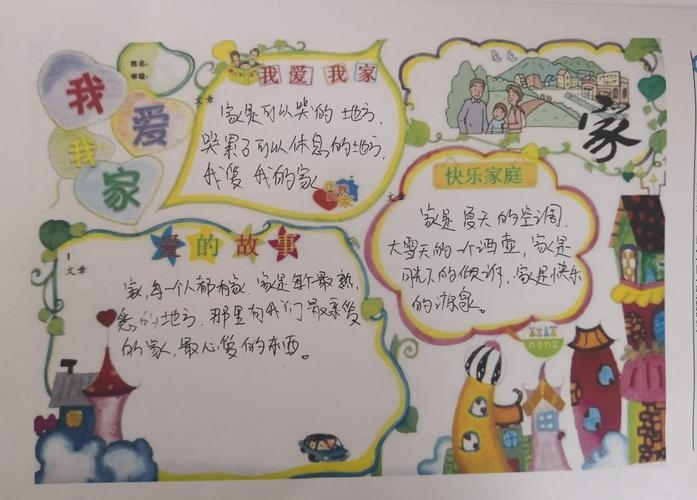 我爱我家
姓名:
班级:
我爱我家
文章
家是可以哭的地方,
哭累了可以休息的地方,
我爱我的家
家
快乐家庭
文章
家是夏天的空调,
大雪天的一个酒壶,家是
的倾诉,家是快乐
的源泉。
爱的故事
文章
家,每一个人都有家,家是每个最熟
悉的地方,那里有我们最亲爱
的家,最心爱的东西。